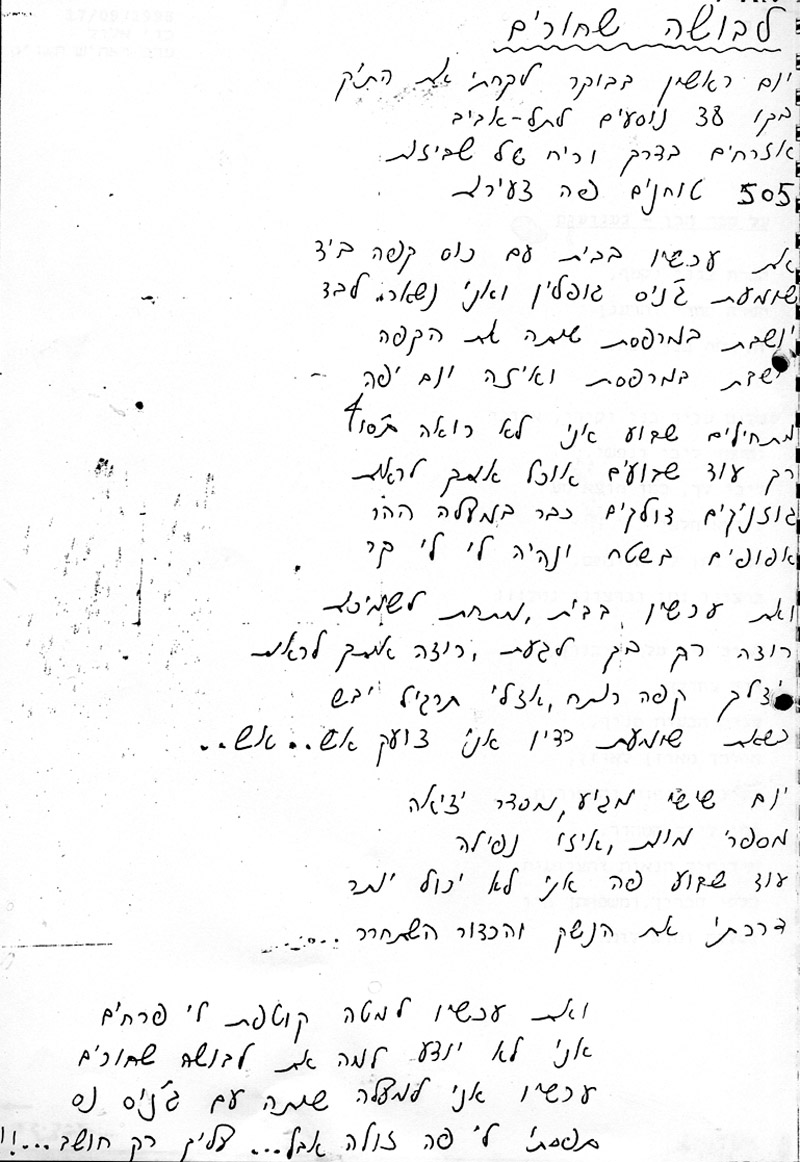 לבושה שחורים
יום ראשון בבוקר לקחתי את התיק
בקו 38 נוסעים לתל-אביב
אזרחים בדרך וריח של שביזות
505 טוחנים פה צעירות
את עכשיו בבית עם כוס קפה ביד
שומעת ג'ניס גופלין ואני נשאר לבד
יושבת במרפסת שותה את הקפה
יושבת במרפסת ואיזה יום יפה
מתחילים שבוע אני לא רואה ת'סוף
רק עוד שבועים אוכל אותך לראות
גוזניקים דולקים כבר במעלה ההר
אפופים בשטח ונהיה לי לי קר
ואת עכשיו בבית, מתחת לשמיכות
רוצה רק בך לגעת, רוצה אותך לראות
אצלך קפה רותח, אצלי תרגיל יבש
כשאת שומעת רדיו אני צועק אש.. אש..
יום שישי מגיע, מסדר יציאה
מספרי מוות, איזו נפילה
עוד שבוע פה אני לא יכול יותר
דרכתי את הנשק והכדור השתחרר .....
ואת עכשיו למטה קוטפת לי פרחים
אני לא יודע למה את לבושה שחורים
עכשיו אני למעלה שותה עם ג'ניס נס
תפסתי לי פה זולה אבל... עליך רק חושב...!!